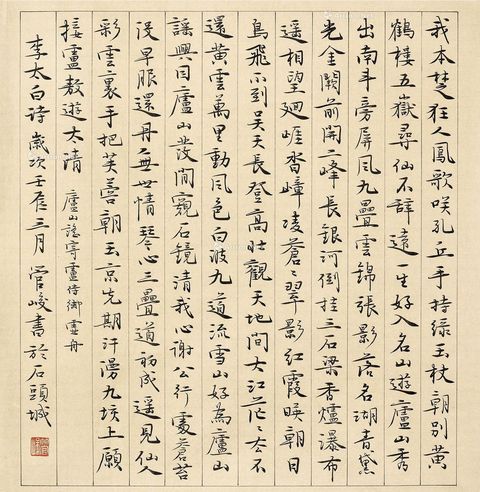 我本楚狂人鳳歌咲孔丘手持緑玉杖朝別黄
鶴樓五嶽尋仙不辭遠一生好入名山遊廬山秀
出南斗旁屏風九疊雲錦張影落名湖青黛
光金闕前開二峰長銀河倒挂三石梁香爐瀑布
遥相望迴崖沓嶂凌蒼々翠影紅霞暎朝日
鳥飛不到吴天長登高壯觀天地間大江茫々去不
還黄雲萬里動風色白波九道流雪山好為廬山
謡興因廬山發閒窺石鏡清我心謝公行處蒼苔
没早服還丹無世情琴心三疊道初成遥見仙人
彩雲裏手把芙蓉朝玉京先期汗漫九垓上願
接盧敖遊太清 廬山謡寄盧侍御虚舟
李太白诗歲次壬辰三月管峻書於石頭城